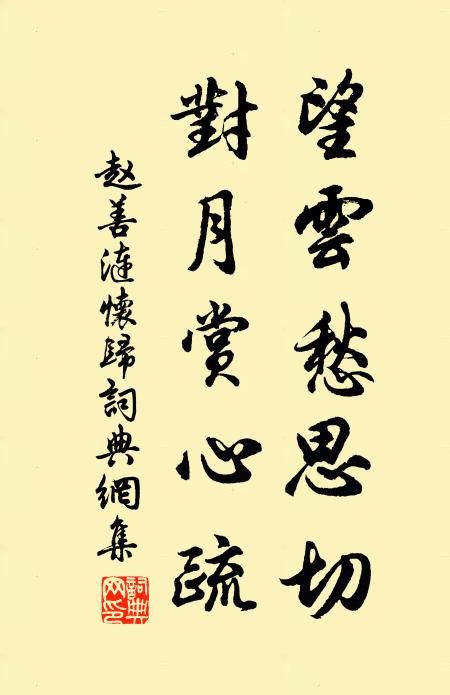 望雲愁思切
對月賞心疏
赵善涟懷歸詞典網集
詞典网印